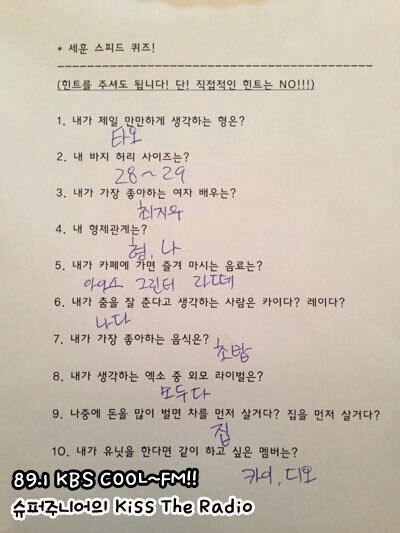 * 세훈 스피드 퀴즈!
(힌트를 주셔도 됩니다! 단! 직접적인 힌트는 NO!!!)
1. 내가 제일 만만하게 생각하는 형은?
타오
2. 내 바지 허리 사이즈는?
28~29
3. 내가 가장 좋아하는 여자 배우는?
최지우
4. 내 형제관계는?
형, 나
5. 내가 카페에 가면 즐겨 마시는 음료는?
아이스 그린티 라떼
6. 내가 춤을 잘 춘다고 생각하는 사람은 카이다? 레이다?
나다
7. 내가 가장 좋아하는 음식은?
초밥
8. 내가 생각하는 엑소 중 외모 라이벌은?
모두다
9. 나중에 돈을 많이 벌면 차를 먼저 살거다? 집을 먼저 살거다?
집
10. 내가 유닛을 한다면 같이 하고 싶은 멤버는?
카이, 디오
89.1 KBS COOL~FM!!
슈퍼주니어의 Kiss The Radio